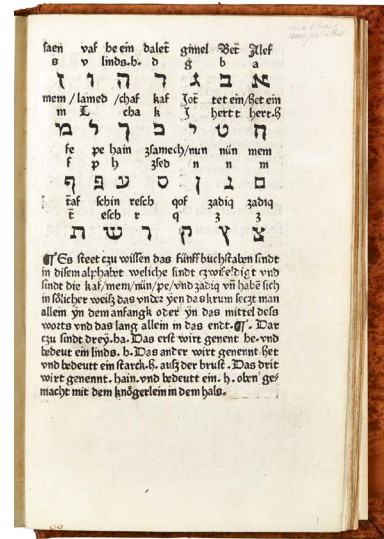 saen vaf he ein dalet gimel Bet Alef
s v linds.h. d g b a
ז ו ה ד ג ב א
mem / lamed / chaf kaf Jot tet ein / Het ein
m L cha k J hert t hert.h
מ ל ך כ י ט ח
fe pe hain zsamech / nun nün mem
f p h zsed n n m
ף פ ע ס ן נ ם
taf schin resch qof zadiq zadiq
t esch r q z z
ת ש ר ק ץ צ
¶ Es steet czu wissen das fünff buchstaben sindt
in disem alphabet weliche sindt czwifeldig vnd
sindt die kaf / mem / nün / pe / vnd zadiq vñ habẽ sich
in sölicher weiß das vnder yen das krum seczt man
allein ÿn dem anfangk oder ÿn das mittel dess
worts vnd das lang allein in das endt. ¶. Dar
czu sindt drey.ha. Das erst wirt genent he.vnd
bedeut ein linds. h. Das ander wirt genennt het
vnd bedeutt ein starck.h. auß der brust. Das drit
wirt genennt. hain.vnd bedeutt ein. h. oben ge⸗
macht mit dem knögerlein in dem hals.